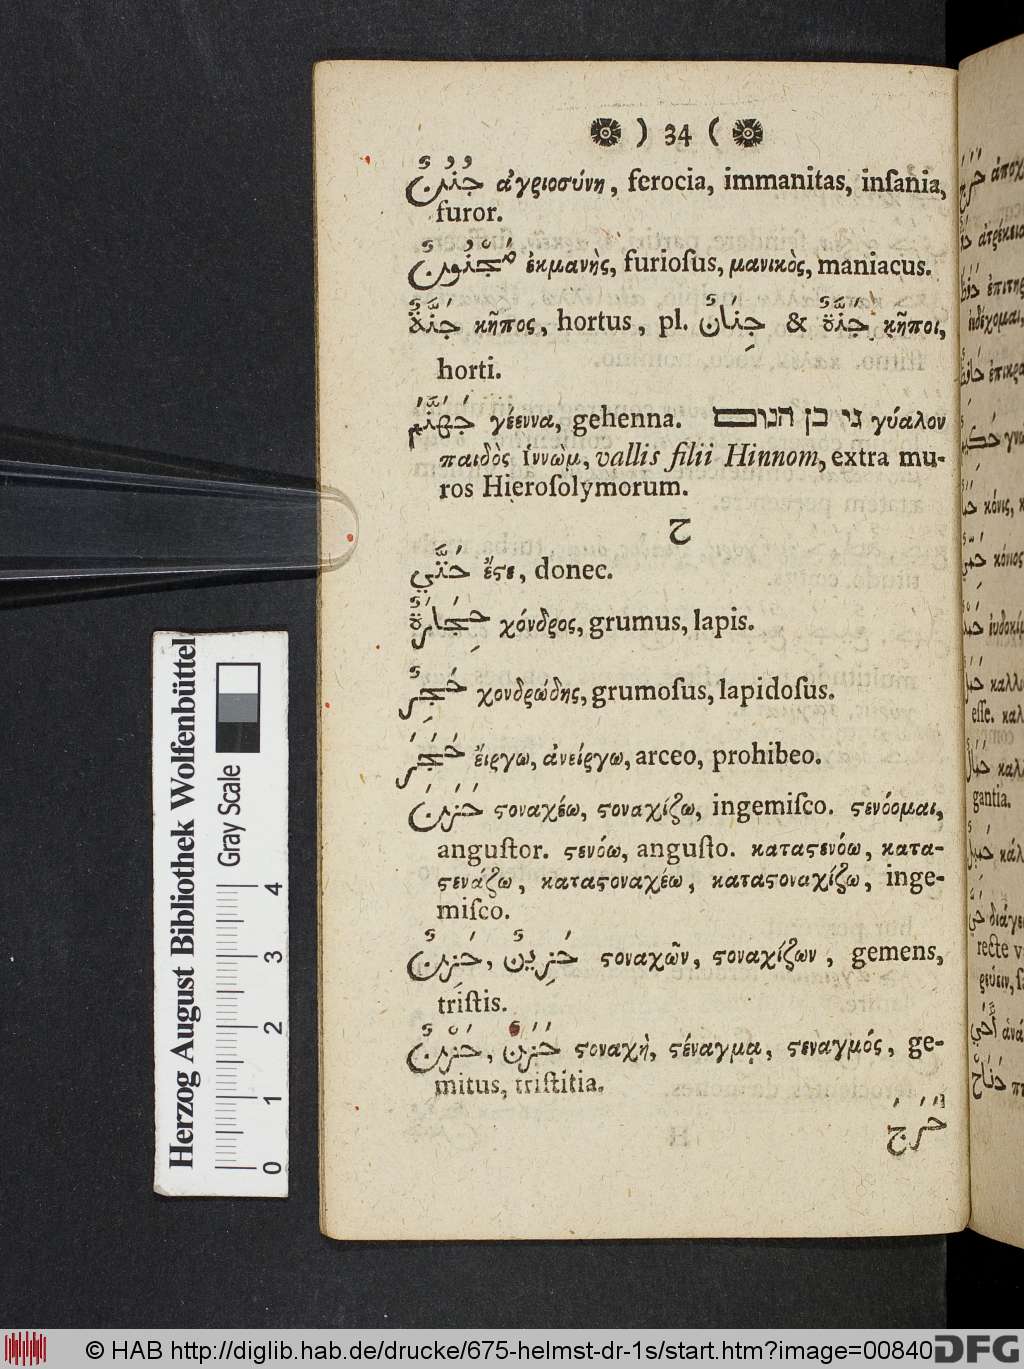 ) 34 (
جُنُنٌ ἀγριοσύνη, ferocia, immanitas, inſania,
furor.
مَجْنُونٌ ἐκμανὴς, furioſus, μανικὸς, maniacus.
جَنَّةٌ κῆπος, hortus, pl. جِنَانٌ & جَنَّةٌ κῆποι,
horti.
جَهَنَّمَ γέεννα, gehenna. גי בן הנום γύαλον
παιδὸς ἱννὼμ, vallis filii Hinnom, extra mu-
ros Hieroſolymorum.
ح
حَتَّي ἔϛε, donec.
حِجَارَةٌ χόνδρος, grumus, lapis.
حَجِرٌ χονδρώδης, grumoſus, lapidoſus.
حَجَرَ ἔιργω, ἀνείργω, arceo, prohibeo.
حَزَنَ ϛοναχέω, ϛοναχίζω, ingemiſco. ϛενόομαι,
anguſtor. ϛενόω, anguſto. καταϛενόω, κατα-
ϛενάζω, καταϛοναχέω, καταϛοναχίζω, inge-
miſco.
حَزِنٌ, حَزِينٌ ϛοναχῶν, ϛοναχίζων, gemens,
triſtis.
حُزْنٌ, حَزَنٌ ϛοναχὴ, ϛέναγμα, ϛεναγμός, ge-
mitus, triſtitia.
حَرَجَ
Herzog August Bibliothek Wolfenbüttel
Gray Scale
0 1 2 3 4
© HAB http://diglib.hab.de/drucke/675-helmst-dr-1s/start.htm?image=00840
DFG